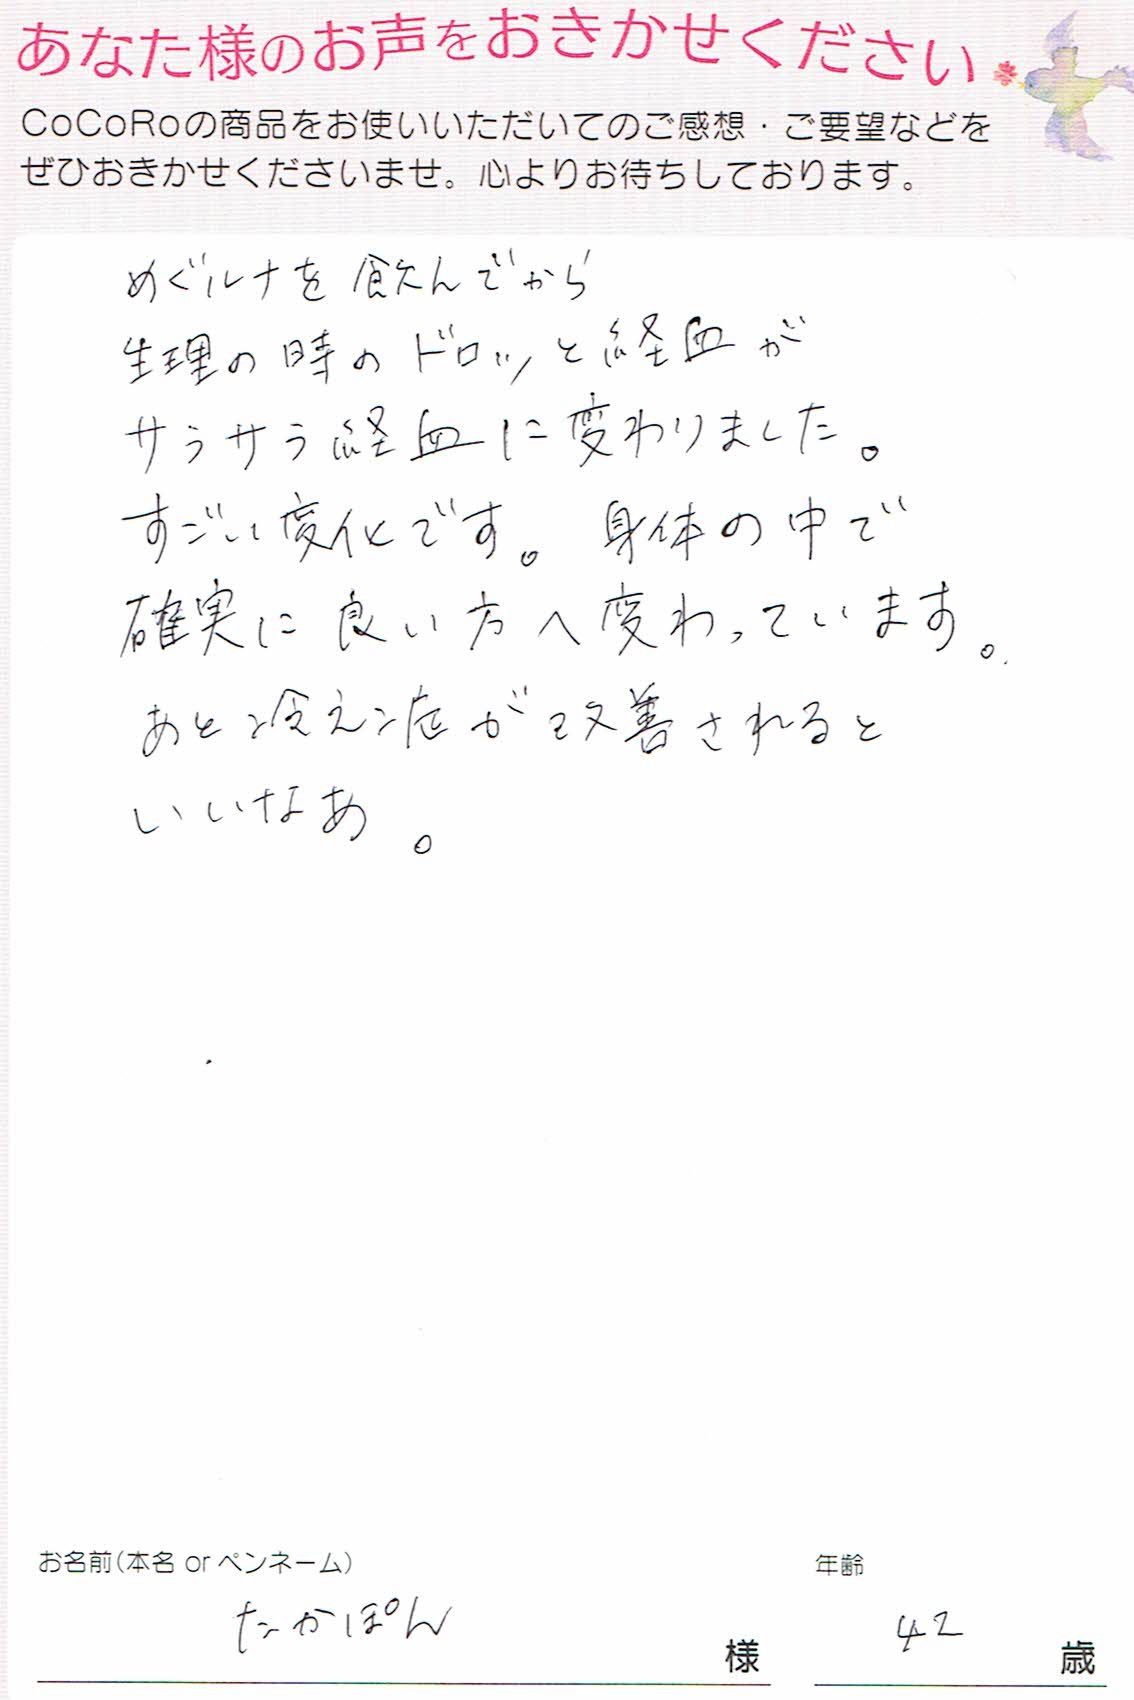 あなた様のお声をおきかせください
CoCoRoの商品をお使いいただいてのご感想・ご要望などを
ぜひおきかせくださいませ。心よりお待ちしております。
めぐルナを飲んでから
生理の時のドロッと経血が
サラサラ経血に変わりました。
すごい変化です。身体の中で
確実に良い方へ変わっています。
あと冷え症が改善されると
いいなあ。
お名前(本名 or ペンネーム)
年齢
たかぽん 様
42 歳